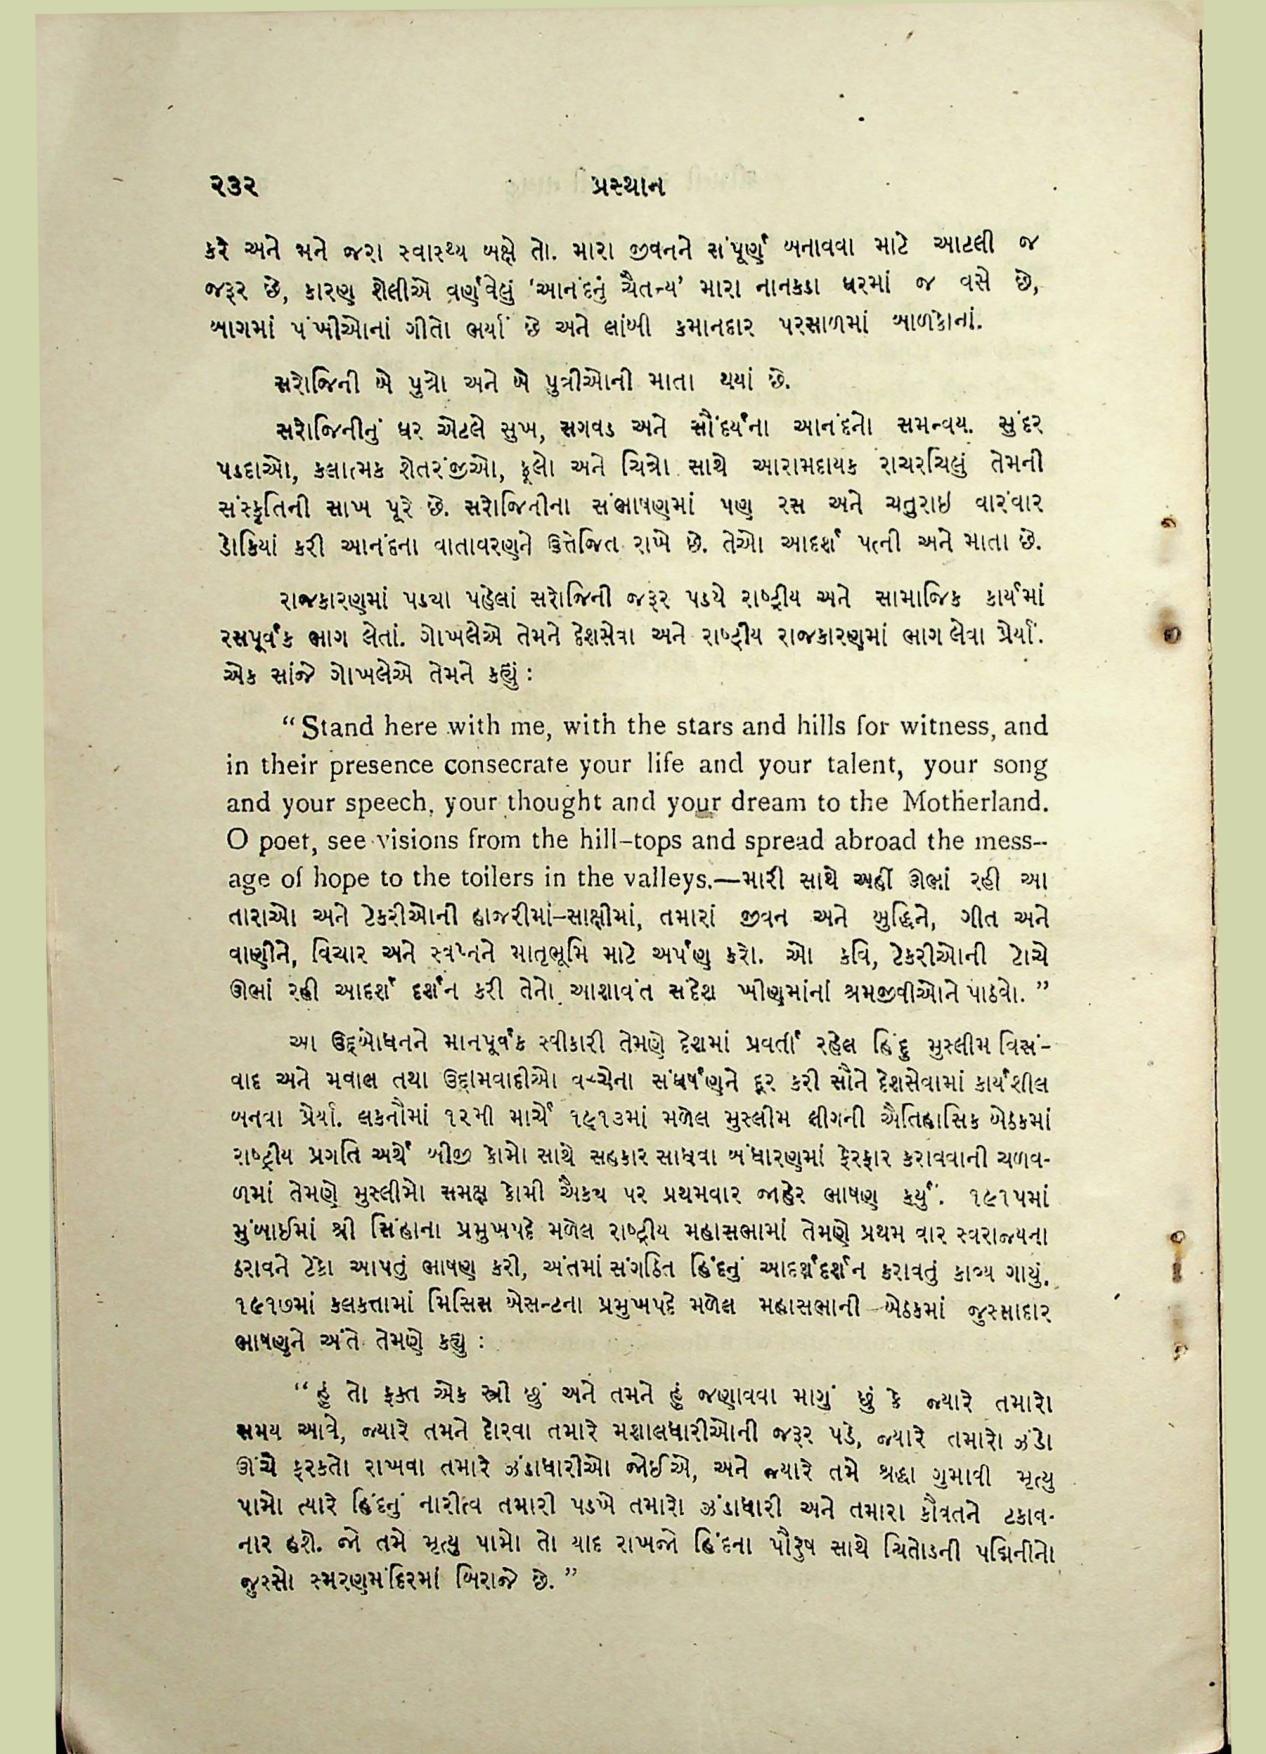 ૨૩૨ પ્રસ્થાન
કરે અને મને જરા સ્વાસ્થ્ય બક્ષે તો. મારા જીવનને સંપૂર્ણ બનાવવા માટે આટલી જ
જરૂર છે, કારણ શેલીએ વર્ણવેલું ‘આનંદનું ચૈતન્ય’ મારા નાનકડા ઘરમાં જ વસે છે,
બાગમાં પંખીઓનાં ગીતો ભર્યાં છે અને લાંબી કમાનદાર પરસાળમાં બાળકોનાં.
સરોજિની બે પુત્રો અને બે પુત્રીઓની માતા થયાં છે.
સરોજિનીનું ઘર એટલે સુખ, સગવડ અને સૌંદર્યના આનંદનો સમન્વય. સુંદર
પડદાઓ, કલાત્મક શેતરંજીઓ, ફૂલો અને ચિત્રો સાથે આરામદાયક રાચરચિલું તેમની
સંસ્કૃતિની સાખ પૂરે છે. સરોજિનીના સંભાષણમાં પણ રસ અને ચતુરાઇ વારંવાર
ડોકિયાં કરી આનંદના વાતાવરણને ઉત્તેજિત રાખે છે. તેઓ આદર્શ પત્ની અને માતા છે.
રાજકારણમાં પડયા પહેલાં સરોજિની જરૂર પડયે રાષ્ટ્રીય અને સામાજિક કાર્યમાં
રસપૂર્વક ભાગ લેતાં. ગોખલેએ તેમને દેશસેવા અને રાષ્ટ્રીય રાજકારણમાં ભાગ લેવા પ્રેર્યાં.
એક સાંજે ગોખલેએ તેમને કહ્યું :
“Stand here with me, with the stars and hills for witness, and
in their presence consecrate your life and your talent, your song
and your speech, your thought and your dream to the Motherland.
O poet, see visions from the hill-tops and spread abroad the mess-
age of hope to the toilers in the valleys.—મારી સાથે અહીં ઊભાં રહી આ
તારાઓ અને ટેકરીઓની હાજરીમાં-સાક્ષીમાં, તમારાં જીવન અને બુદ્ધિને, ગીત અને
વાણીને, વિચાર અને સ્વપ્નને માતૃભૂમિ માટે અર્પણ કરો. ઓ કવિ, ટેકરીઓની ટોચે
ઊભાં રહી આદર્શ દર્શન કરી તેનો આશાવંત સંદેશ ખીણમાંનાં શ્રમજીવીઓને પાઠવો. ”
આ ઉદ્‌બોધનને માનપૂર્વક સ્વીકારી તેમણે દેશમાં પ્રવર્તી રહેલ હિંદુ મુસ્લીમ વિસં-
વાદ અને મવાલ તથા ઉદ્દામવાદીઓ વચ્ચેના સંઘર્ષણને દૂર કરી સૌને દેશસેવામાં કાર્યશીલ
બનવા પ્રેર્યા. લકનૌમાં ૧૨મી માર્ચે ૧૯૧૩માં મળેલ મુસ્લીમ લીગની ઐતિહાસિક બેઠકમાં
રાષ્ટ્રીય પ્રગતિ અર્થે બીજી કોમો સાથે સહકાર સાધવા બંધારણમાં ફેરફાર કરાવવાની ચળવ-
ળમાં તેમણે મુસ્લીમો સમક્ષ કોમી ઐક્ય પર પ્રથમવાર જાહેર ભાષણ કર્યું. ૧૯૧૫માં
મુંબાઈમાં શ્રી સિંહાના પ્રમુખપદે મળેલ રાષ્ટ્રીય મહાસભામાં તેમણે પ્રથમ વાર સ્વરાજ્યના
ઠરાવને ટેકો આપતું ભાષણ કરી, અંતમાં સંગઠિત હિંદનું આદર્શદર્શન કરાવતું કાવ્ય ગાયું.
૧૯૧૭માં કલકત્તામાં મિસિસ બેસન્ટના પ્રમુખપદે મળેલ મહાસભાની બેઠકમાં જુસ્સાદાર
ભાષણને અંતે તેમણે કહ્યુ :
“હું તો ફક્ત એક સ્ત્રી છું અને તમને હું જણાવવા માગું છું કે જ્યારે તમારો
સમય આવે, જ્યારે તમને દોરવા તમારે મશાલધારીઓની જરૂર પડે, જ્યારે તમારો ઝંડો
ઊંચે ફરકતો રાખવા તમારે ઝંડાધારીઓ જોઈએ, અને જ્યારે તમે શ્રદ્ધા ગુમાવી મૃત્યુ
પામો ત્યારે હિંદનું નારીત્વ તમારી પડખે તમારો ઝંડાધારી અને તમારા કૌવતને ટકાવ-
નાર હશે. જો તમે મૃત્યુ પામો તો યાદ રાખજો હિંદના પૌરુષ સાથે ચિતોડની પદ્મિનીનો
જુસ્સો સ્મરણમંદિરમાં બિરાજે છે. ”